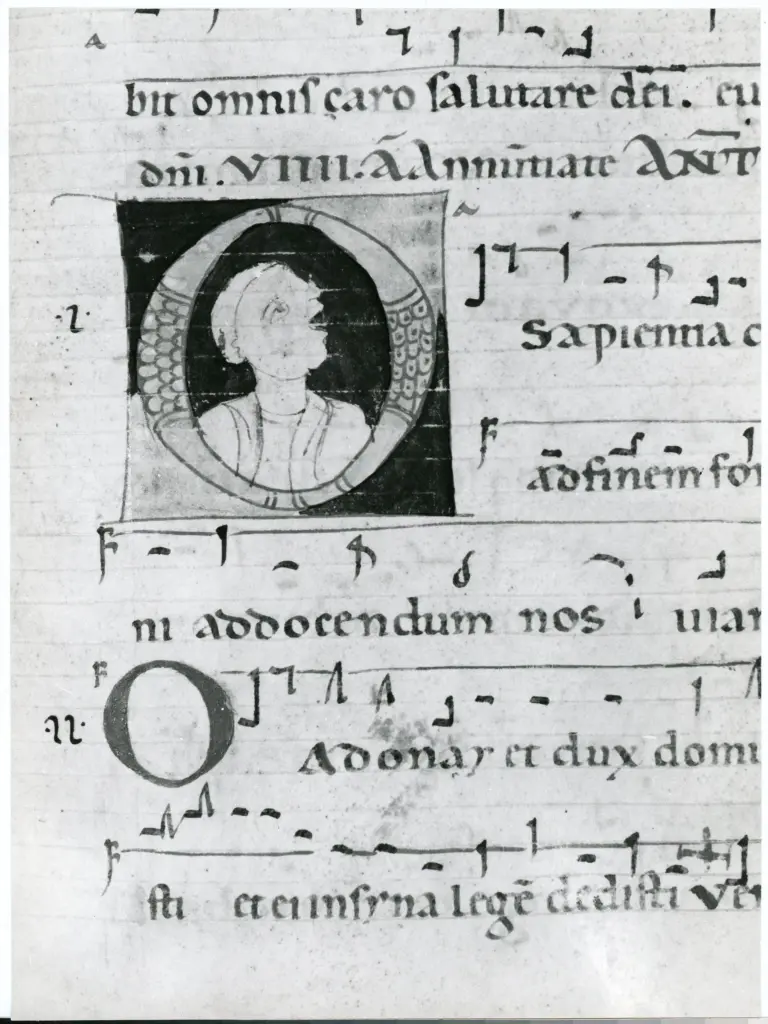 A
bit omnis caro salutare dei. eu
dni. VIIII. A Annuntiate ANT
a
.I.
O
Sapientia c
F
Ad finem for
F
ni ad docendum nos uiam
F
.II.
O
Adonay et dux domi
F
sti et ei in syna lege dedisti Ve